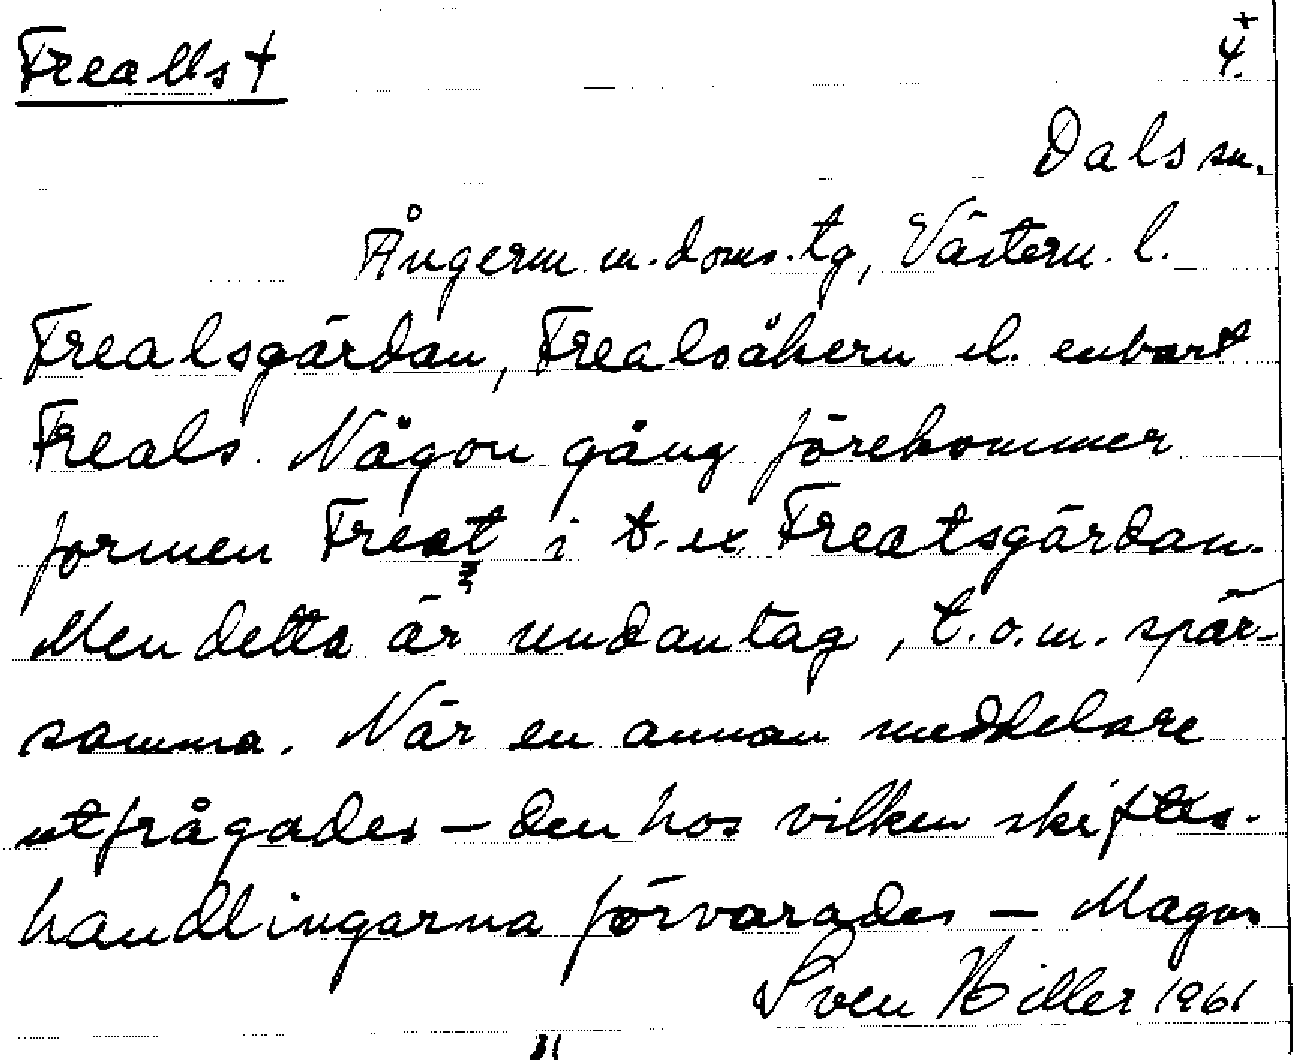 Frealls † 4.+
Dals sn.
Ångerm. m. doms. tg, Västern. l.
Frealsgärdan, Frealsåkern el. enbart
Freals. Någon gång förekommer
formen Freat i t. ex Freatsgärdan.
Men detta är undantag, t.o.m. spar-
samma. När en annan meddelare
utfrågades – den hos vilken skiftes-
handlingarna förvarades – Magnus
Sven Hiller 1961